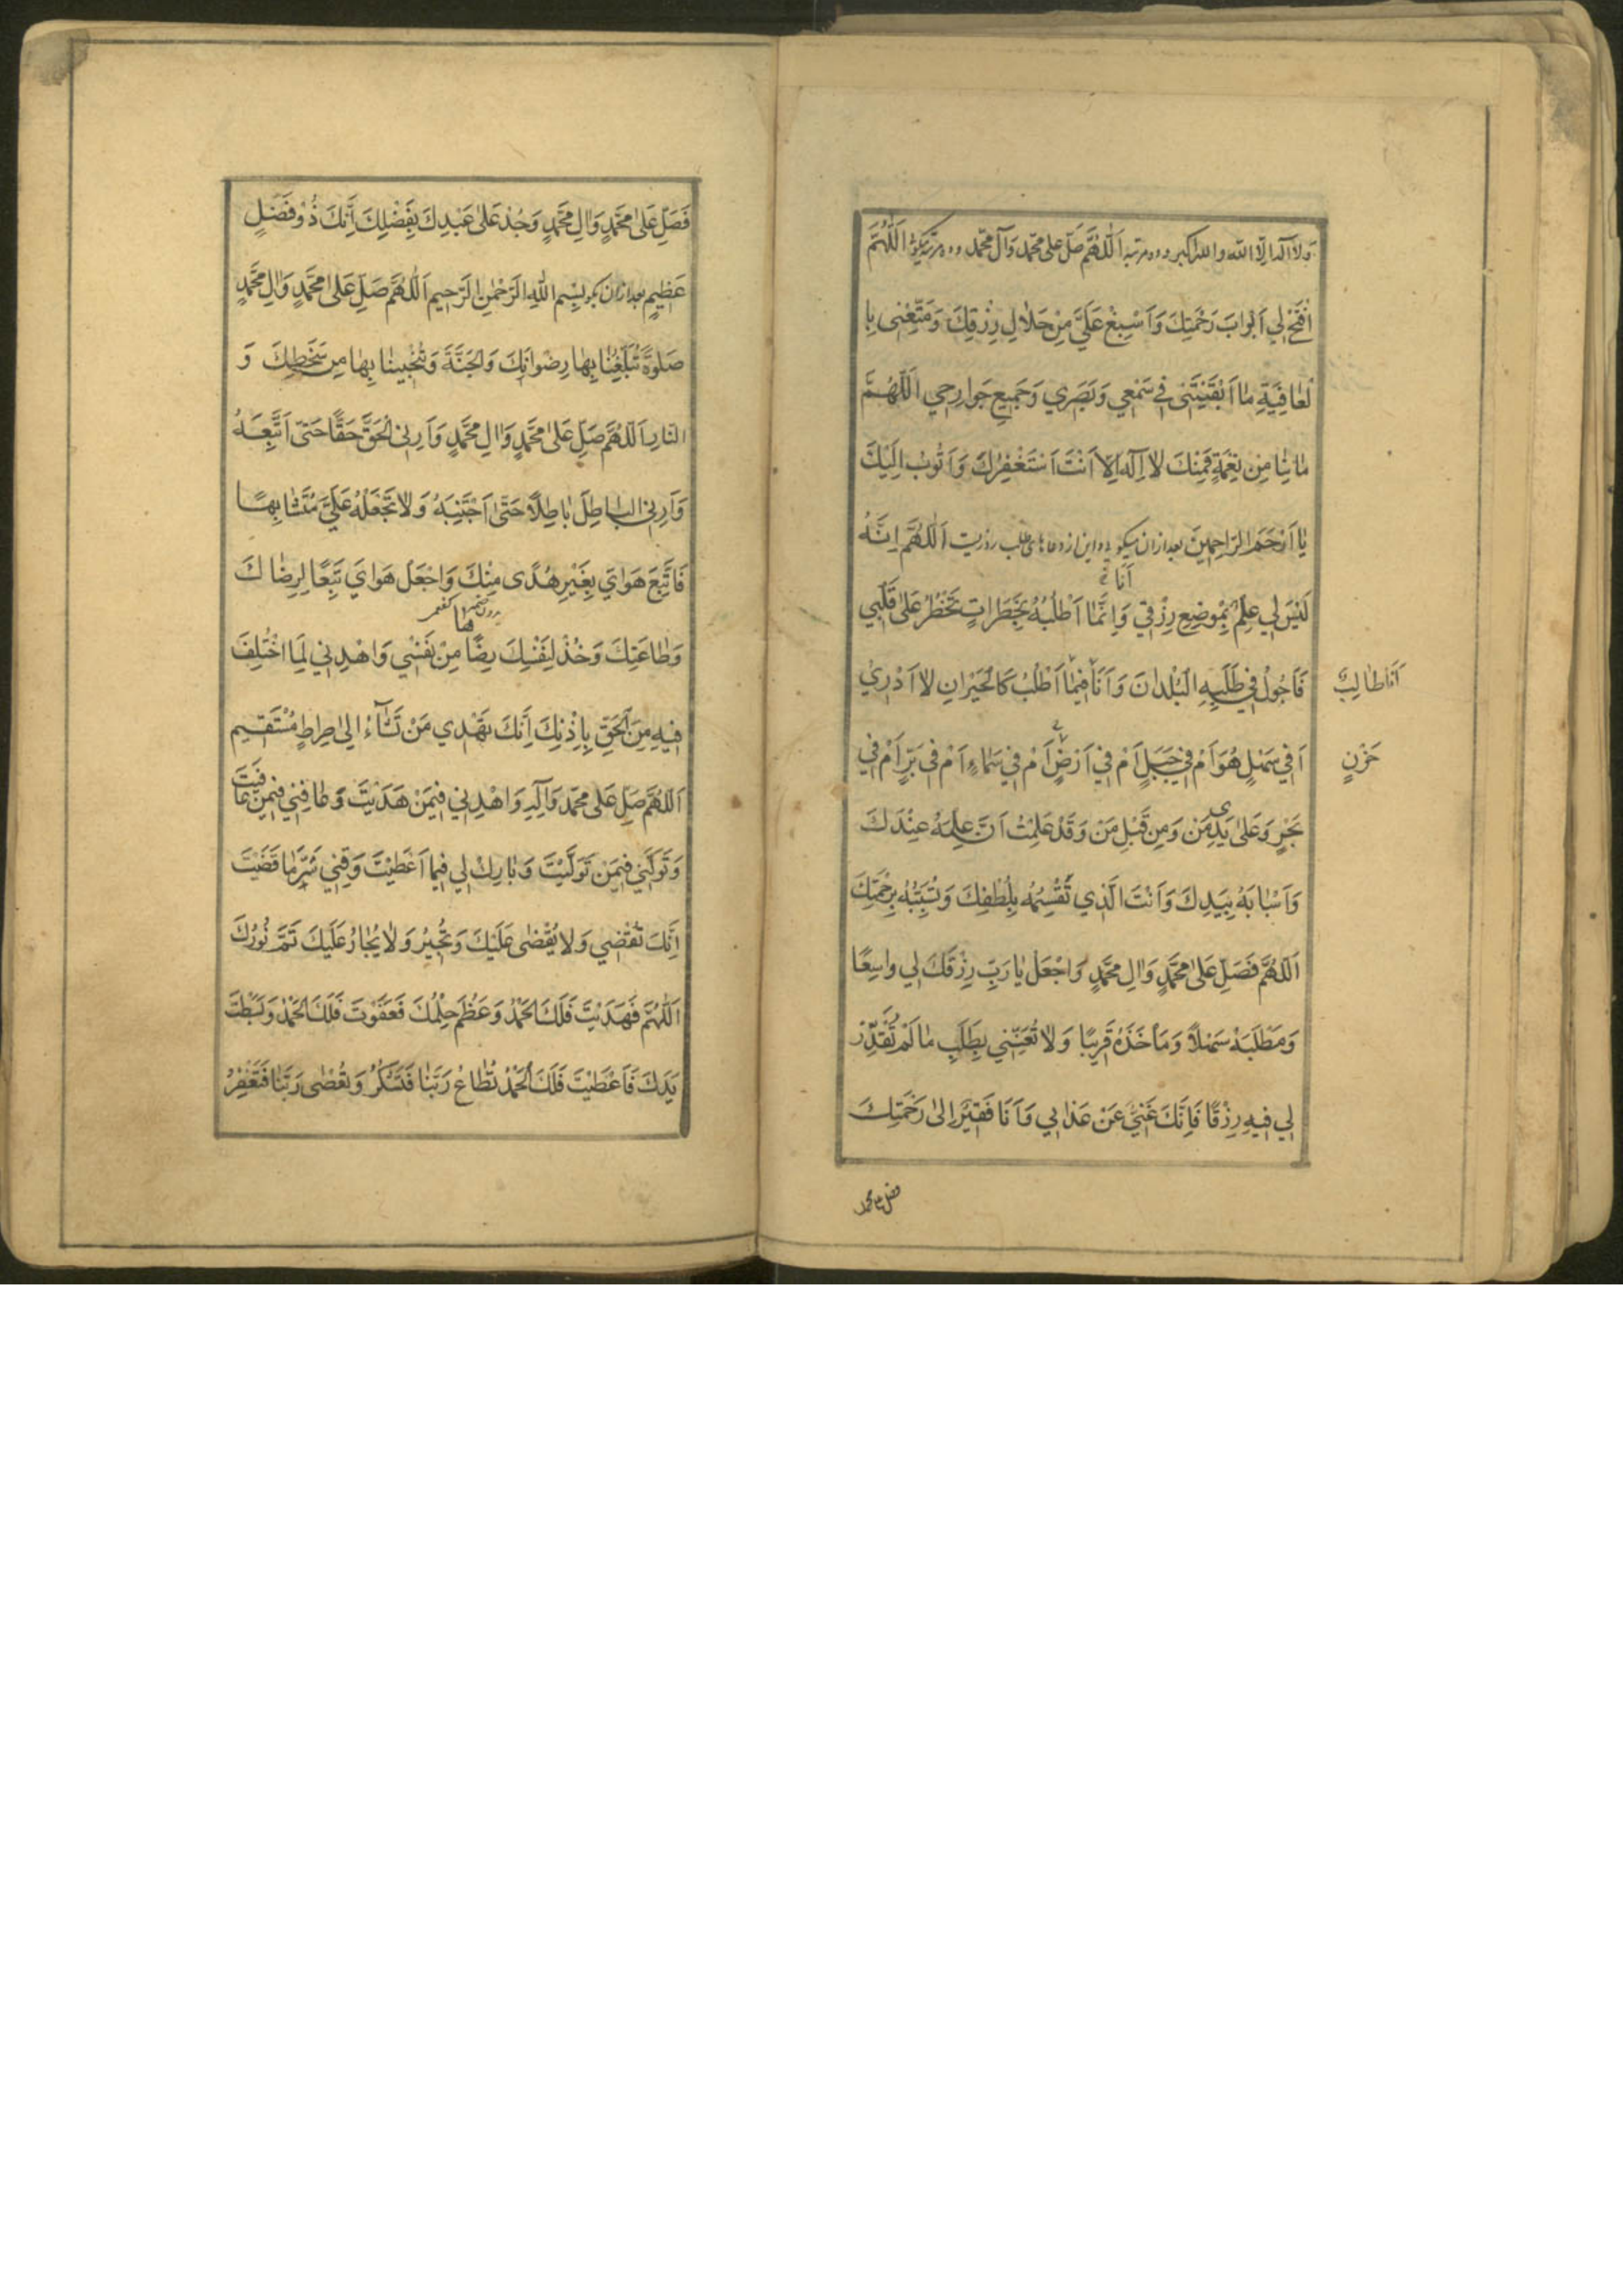 ولا اله الا الله والله اكبر وده مرتبه اَللّهُمَّ صَلِّ على محمّد وَآل محمّد وده مرتبه بگويد اَللّهُمَّ
افْتَحْ لِي اَبْوابَ رَحْمَتِكَ وَاَسْبِغْ عَلَيَّ مِنْ حَلالِ رِزْقِكَ وَمَتِّعْنِى بِا
لْعافِيَةِ ما اَبْقَيْتَنى فى سَمْعِي وَبَصَرِي وَجَمِيعِ جَوارِحِي اَللّهُمَّ
ما بِنا مِن نِعْمَةٍ فَمِنْكَ لا اِلهَ اِلاّ اَنْتَ اَسْتَغْفِرُكَ وَاَتُوبُ اِلَيْكَ
يا اَرْحَمَ الرّاحِمِينَ بعد ازان ميگويد واين از دعاهاى طلب روزيست اَللّهُمَّ اِنَّهُ
اَنَا
لَيْسَ لِي عِلْمٌ بِمَوضِعِ رِزْقي وَاِنَّما اَطْلُبُهُ بِخَطَراتٍ تَخْطُرُ عَلى قَلْبِي
فَاَجُولُ فِي طَلَبِهِ الْبُلْدانَ وَاَنَا فِيما اَطْلُبُ كَالْحَيْرانِ لا اَدْرِي
اَنَا طالِبٌ
اَفِي سَهْلٍ هُوَ اَمْ فِي جَبَلٍ اَمْ فِي اَرْضٍ اَمْ فِي سَماءٍ اَمْ فِى بَرٍّ اَمْ فِي
حَزْنٍ
بَحْرٍ وَعَلى يَدَيْ مَنْ وَمِنْ قِبَلِ مَنْ وَقَدْ عَلِمْتُ اَنَّ عِلْمَهُ عِنْدَكَ
وَاَسْبابَهُ بِيَدِكَ وَاَنْتَ الَّذِي تَقْسِمُهُ بِلُطْفِكَ وَتُسَبِّبُهُ بِرَحْمَتِكَ
اَللّهُمَّ فَصَلِّ عَلى مُحَمَّدٍ وَالِ مُحَمَّدٍ وَاجْعَل يا رَبِّ رِزْقَكَ لِي واسِعًا
وَمَطْلَبَهُ سَهْلاً وَمَأخَذَهُ قَرِيبًا وَلا تُعَنِّنِي بِطَلَبِ ما لَمْ تُقَدِّرْ
لِي فِيهِ رِزْقًا فَاِنَّكَ غَنِيٌّ عَنْ عَذابِي وَاَنَا فَقِيرٌ اِلى رَحْمَتِكَ
فصل على محمد
فَصَلِّ عَلى مُحَمَّدٍ وَالِ مُحَمَّدٍ وَجُدْ عَلى عَبْدِكَ بِفَضْلِكَ اِنَّكَ ذُو فَضْلٍ
عَظِيمٍ بعد ازان بگويد بِسْمِ اللهِ الرَّحْمنِ الرَّحِيمِ اَللّهُمَّ صَلِّ عَلى مُحَمَّدٍ وَالِ مُحَمَّدٍ
صَلوةً تُبَلِّغُنا بِها رِضْوانَكَ وَالْجَنَّةَ وَتُنْجِينا بِها مِن سَخَطِكَ وَ
النّارِ اَللّهُمَّ صَلِّ عَلى مُحَمَّدٍ وَالِ مُحَمَّدٍ وَاَرِنِى الْحَقَّ حَقًّا حَتّى اَتَّبِعَهُ
وَاَرِنِى الباطِلَ باطِلاً حَتّى اَجْتَنِبَهُ وَلا تَجْعَلْهُ عَلَيَّ مُتَشابِهًا
فَاَتَّبِعَ هَوايَ بِغَيْرِ هُدًى مِنْكَ وَاجْعَلْ هَوايَ تَبَعًا لِرِضاكَ
وَطاعَتِكَ وَخُذْ لِنَفْسِكَ رِضًا مِنْ نَفْسِي وَاهْدِنِي لِمَا اخْتُلِفَ
فِيهِ مِنَ الْحَقِّ بِاِذْنِكَ اِنَّكَ تَهْدِي مَنْ تَشآءُ اِلى صِراطٍ مُسْتَقِيمٍ
اَللّهُمَّ صَلِّ عَلى مُحَمّد وَآلِهِ وَاهْدِنِي فِيمَنْ هَدَيْتَ وَعافِنِي فِيمَنْ عافَيْتَ
وَتَوَلَّنِي فِيمَنْ تَوَلَّيْتَ وَبارِكْ لِي فِيما اَعْطَيْتَ وَقِنِي شَرَّ ما قَضَيْتَ
اِنَّكَ تَقْضِي وَلا يُقْضى عَلَيْكَ وَتُجِيرُ وَلا يُجارُ عَلَيكَ تَمَّ نُورُكَ
اَللّهُمَّ فَهَدَيْتَ فَلَكَ الْحَمْدُ وَعَظُمَ حِلْمُكَ فَعَفَوْتَ فَلَكَ الْحَمْدُ وَبَسَطْتَ
يَدَكَ فَاَعْطَيْتَ فَلَكَ الْحَمْدُ تُطاعُ رَبَّنا فَتَشْكُرُ وَتُعْصى رَبَّنا فَتَغْفِرُ